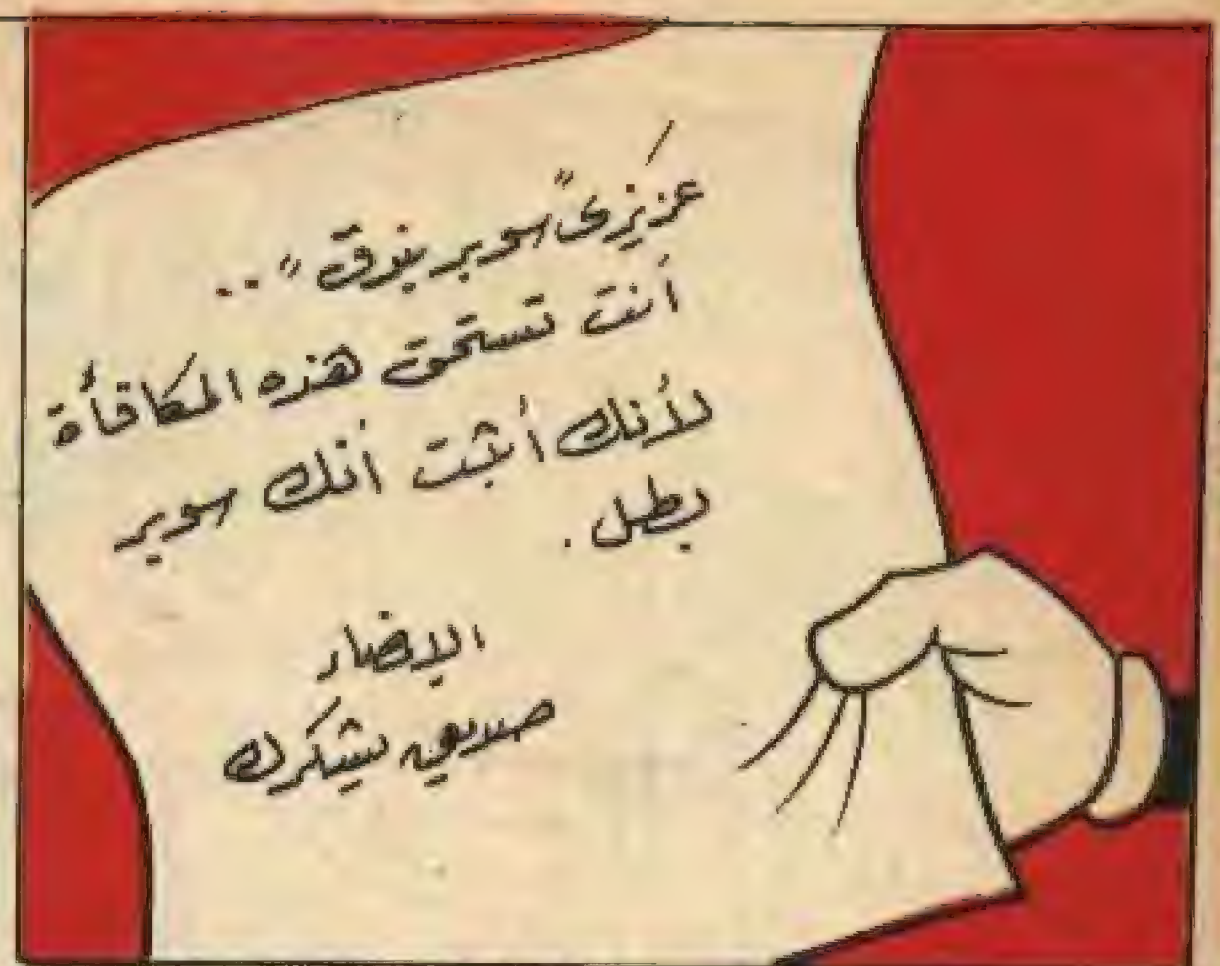 عزيزى "سوبر بندق" ..
أنت تستحق هذه المكافأة
لأنك أثبت أنك سوبر
بطل .
الإمضاء
صديق يشكرك